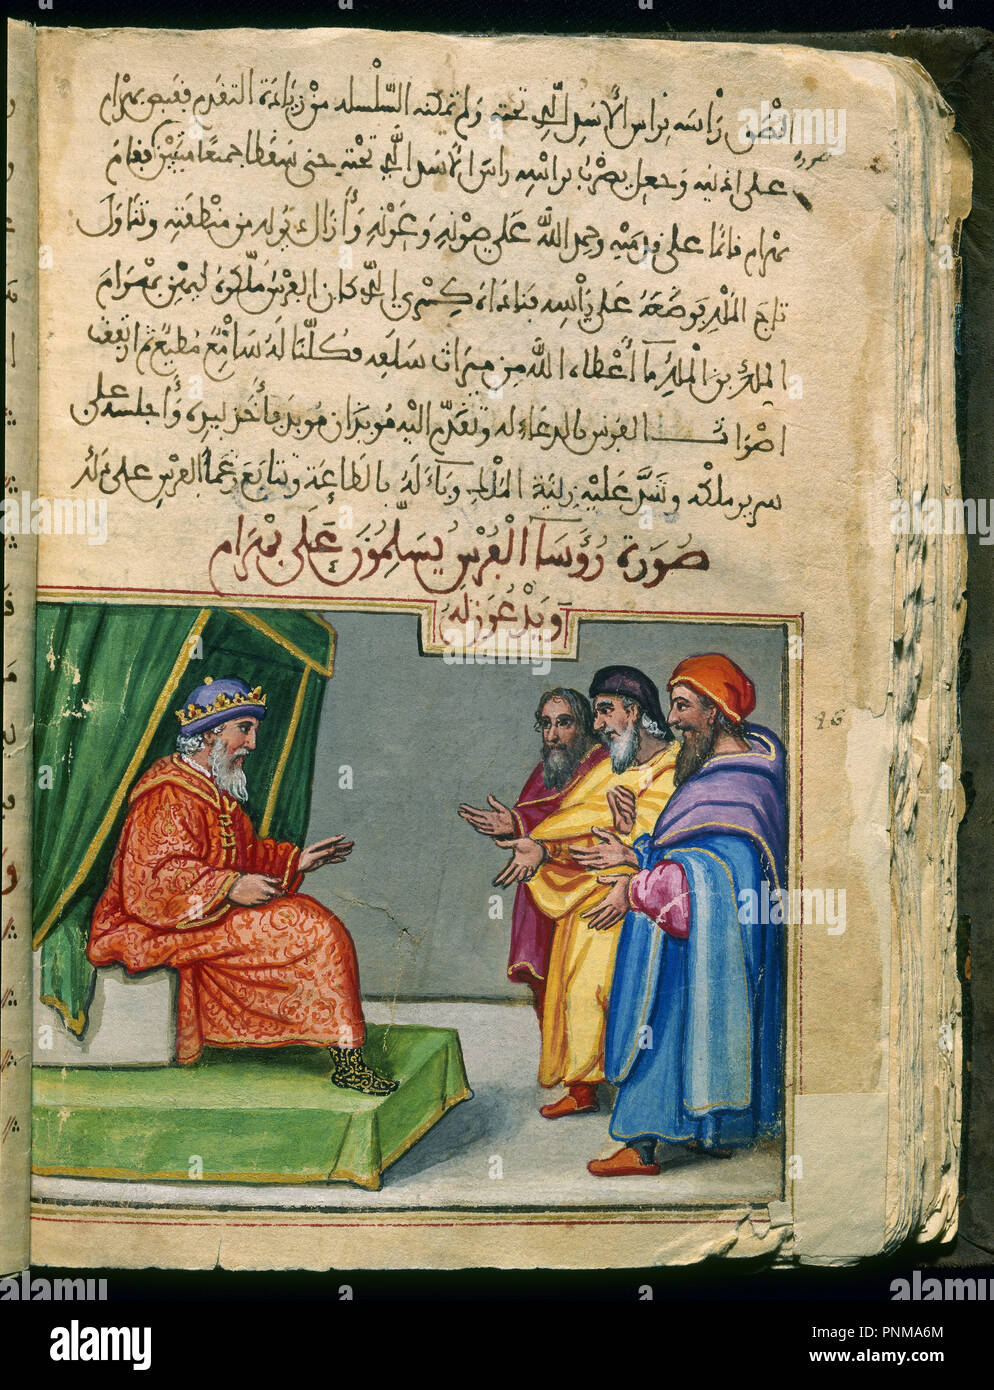 الصق رأسه براس الأسد الذي تحته ولم تمكنه السلسله من زيادة التقدم فقبض بهرام
صورة
على اذنيه وجعل يضرب براسه راس الأسد الذي تحته حتى سقطا جميعا ميتين فقام
بهرام قائما على قدميه وحمد الله على صونه وعونه وأزال بوله من منطقته وتناول
تاج الملك بوضعه على رأسه فناداه كسرى الذي كان الفرس ملكوه ليهن بهرام
الملك بن الملك ما أعطاه الله من ميراث سلفه فكلنا له سامع مطيع ثم ارتفعت
اصوات الفرس بالدعاء له وتقدم اليه موبذان موبذ فأخذ بيده وأجلسه على
سرير ملكه وشد عليه زينة الملك وباء له بالطاعة وتتابع زعماء الفرس على
صورة رؤسآ الفرس يسلمون على بهرام
ويدعون له
46
alamy
PNMA6M